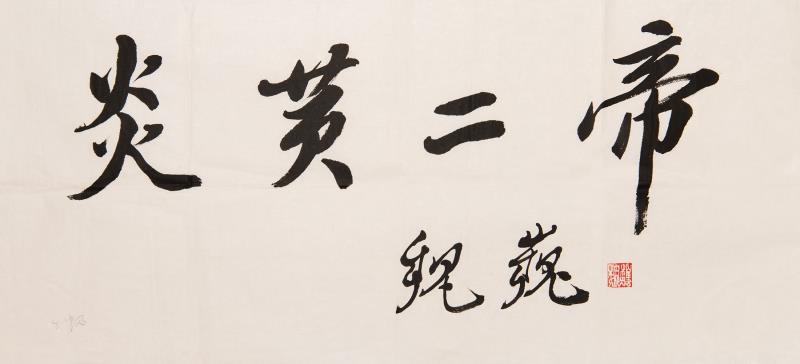 炎黄二帝
魏巍